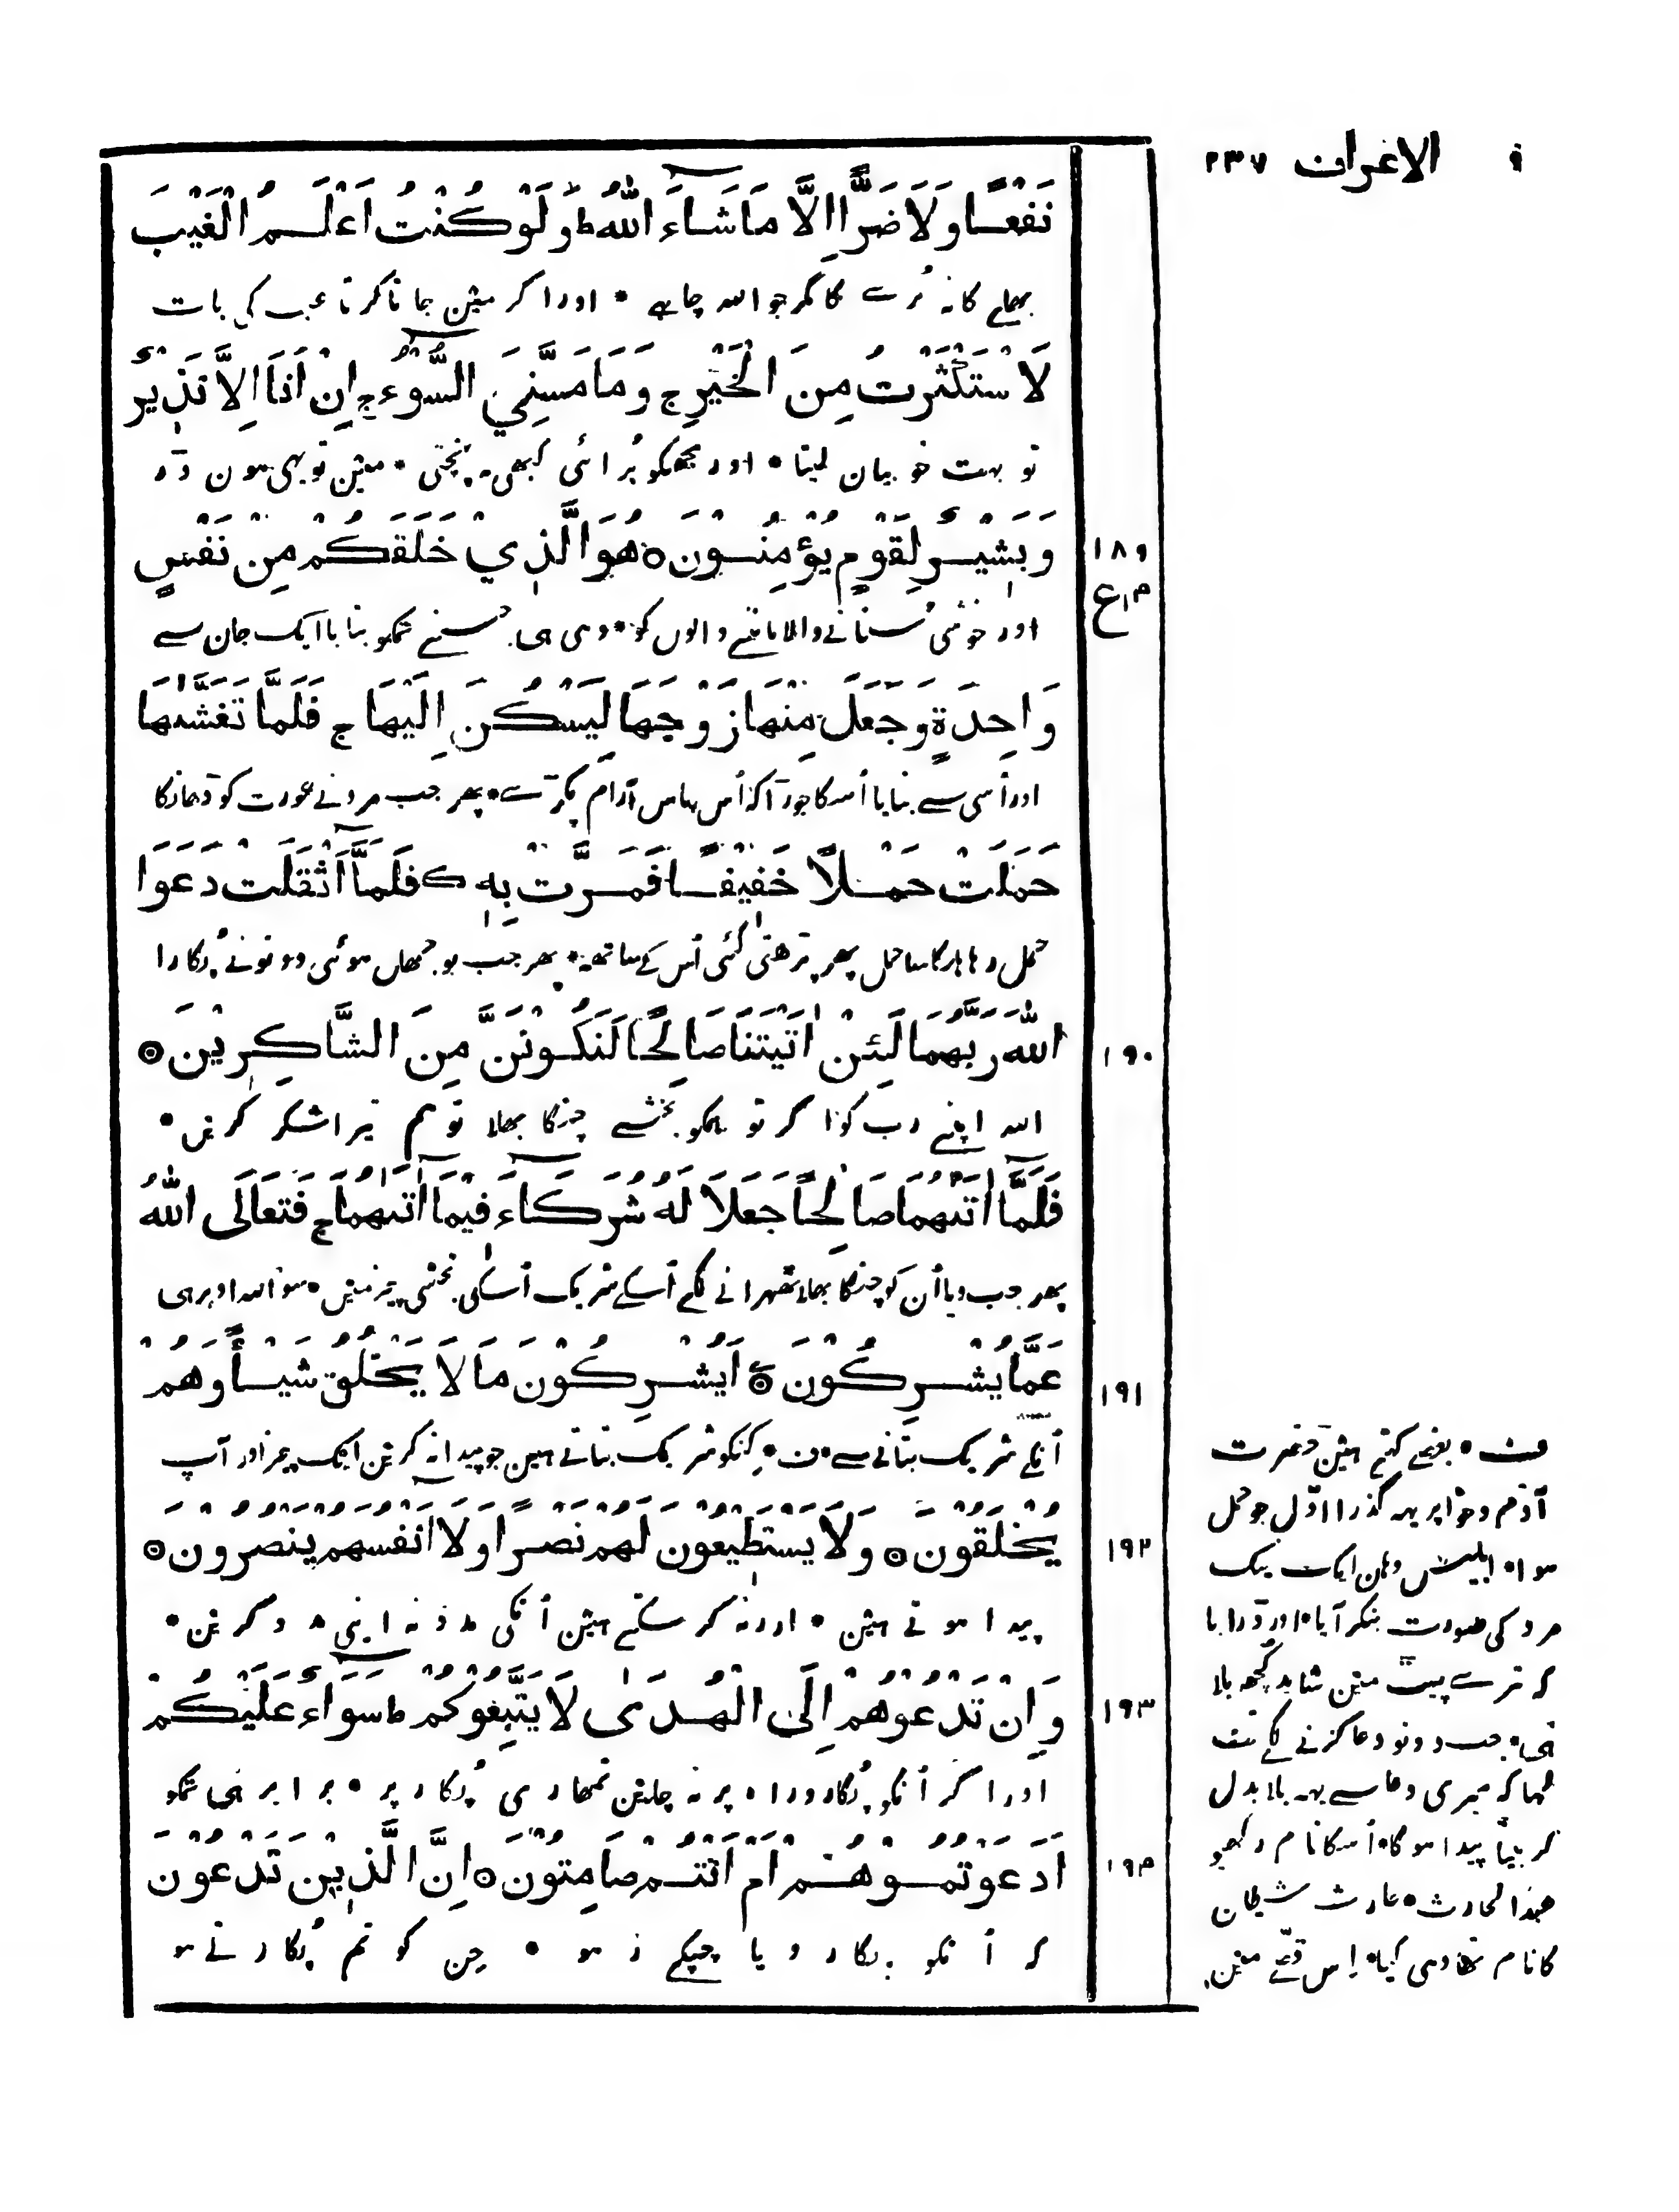 ۹ الاعراف ۲۳۷
نَفْعًا وَلَا ضَرًّا اِلَّا مَا شَآءَ اللّٰهُ ط وَلَوْ كُنْتُ اَعْلَمُ الْغَيْبَ
بھلے کا نہ بُرے کا مگر جو اللہ چاہے • اور اگر مین جانا کرتا غیب کی بات
لَاسْتَكْثَرْتُ مِنَ الْخَيْرِ ج وَمَا مَسَّنِيَ السُّوْٓءُ ج اِنْ اَنَا اِلَّا نَذِيْرٌ
تو بہت خوبیان لیتا • اور مجھکو بُرائی کبھی نہ پہنچتی • مین تو یہی ہون ڈر
وَبَشِيْرٌ لِقَوْمٍ يُؤْمِنُوْنَ ۝ هُوَ الَّذِيْ خَلَقَكُمْ مِنْ نَفْسٍ
۱۸۹
ع
اور خوشی سنانے والا ماننے والوں کو • وہی ہی جسنے تمکو بنایا ایک جان سے
وَاحِدَةٍ وَجَعَلَ مِنْهَا زَوْجَهَا لِيَسْكُنَ اِلَيْهَا ج فَلَمَّا تَغَشّٰىهَا
اور اُسی سے بنایا اُسکا جوڑا کہ اُس پاس آرام پکڑے • پھر جب مرد نے عورت کو ڈھانکا
حَمَلَتْ حَمْلًا خَفِيْفًا فَمَرَّتْ بِهٖ ك فَلَمَّآ اَثْقَلَتْ دَعَوَا
حمل رہا ہلکا سا حمل پھر پڑھتی گئی اُس کے ساتھ • پھر جب بوجھل ہوئی دونو نے پُکارا
اللّٰهَ رَبَّهُمَا لَئِنْ اٰتَيْتَنَا صَالِحًا لَنَكُوْنَنَّ مِنَ الشَّاكِرِيْنَ ۝
۱۹۰
اللہ اپنے رب کو اگر تو ہمکو بخشے چنگا بھلا تو ہم تیرا شکر کرین •
فَلَمَّآ اٰتٰىهُمَا صَالِحًا جَعَلَا لَهُ شُرَكَآءَ فِيْمَآ اٰتٰىهُمَا ج فَتَعَالَى اللّٰهُ
پھر جب دیا اُن کو چنگا بھلا ٹھہرانے لگے اُسکے شریک اُسکی بخشی چیز مین • سو اللہ اوپر ہی
عَمَّا يُشْرِكُوْنَ ۝ اَيُشْرِكُوْنَ مَا لَا يَخْلُقُ شَيْـًٔا وَهُمْ
۱۹۱
اُنکے شریک بتانے سے • ف • کنکو شریک بتاتے ہین جو پیدا نہ کرین ایک چیز اور آپ
يُخْلَقُوْنَ ۝ وَلَا يَسْتَطِيْعُوْنَ لَهُمْ نَصْرًا وَلَا اَنْفُسَهُمْ يَنْصُرُوْنَ ۝
۱۹۲
پیدا ہوتے ہین • اور نہ کر سکتے ہین اُنکی مدد نہ اپنی مدد کرین •
وَاِنْ تَدْعُوْهُمْ اِلَى الْهُدٰى لَا يَتَّبِعُوْكُمْ ط سَوَآءٌ عَلَيْكُمْ
۱۹۳
اور اگر اُنکو پُکارو راہ پر نہ چلین تمھاری پُکار پر • برابر ہی تمکو
اَدَعَوْتُمُوْهُمْ اَمْ اَنْتُمْ صَامِتُوْنَ ۝ اِنَّ الَّذِيْنَ تَدْعُوْنَ
۱۹۴
کہ اُنکو پکارو یا چپکے رہو • جن کو تم پُکارتے ہو
ف • بعضے کہتے ہین حضرت
آدم و حوا پر یہہ گذرا اوّل جو حمل
ہوا • ابلیس وہان ایک نیک
مرد کی صورت بنکر آیا • اور ڈرایا
کہ تیرے پیٹ مین شاید کچھ بلا
ہی • جب دونو دعا کرنے لگے تب
کہا کہ میری دعا سے یہہ بلا بدل
کر بیٹا پیدا ہوگا • اُسکا نام رکھیو
عبد الحارث • حارث شیطان
کا نام تھا وہی کیا • اِس قصّے مین